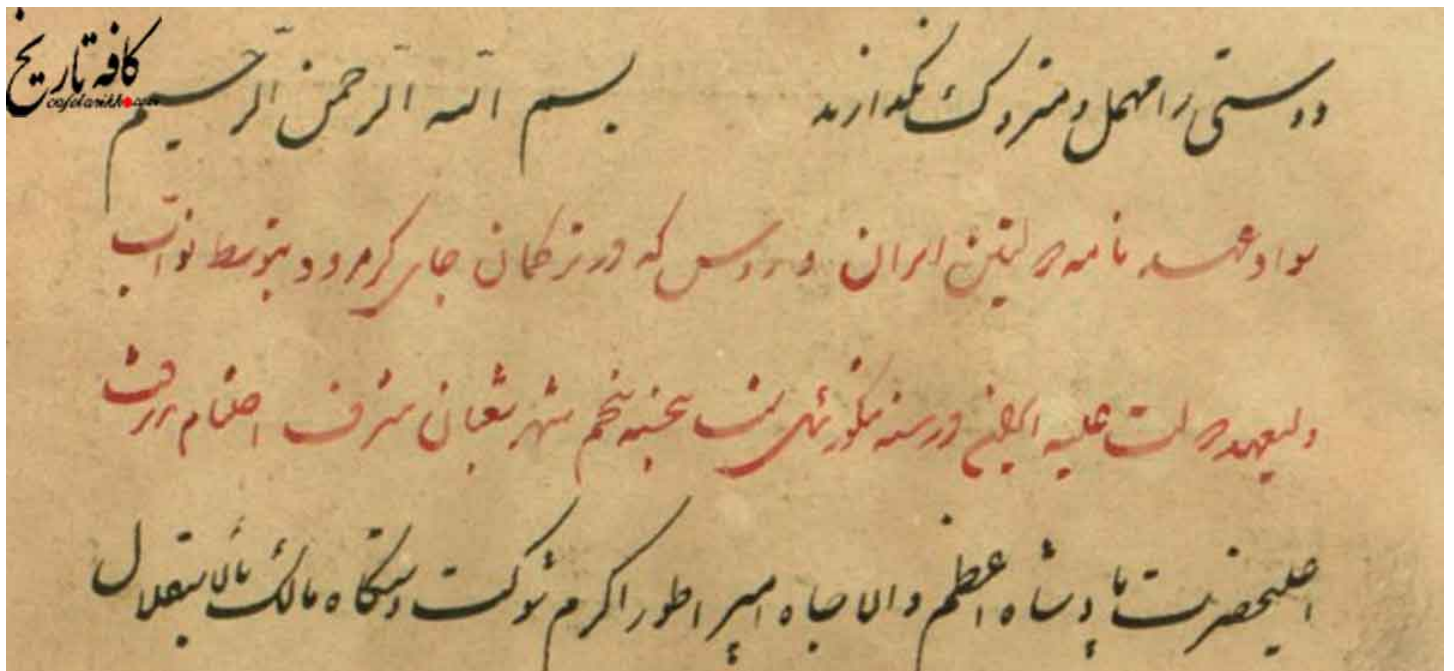 کافه تاریخ
cafetarikh.com
دوستی را مهمل و متروک نگذارند بسم الله الرحمن الرحیم
سواد عهدنامه دولتین ایران و روس که در ترکمان جای کرمرود بتوسط نواب
ولیعهد دولت علیه ایران در سنه پنجشنبه پنجم شهر شعبان شرف اختتام پذیرفت
اعلیحضرت پادشاه اعظم والاجاه امپراطور اکرم شوکت دستگاه مالک بالاستقلال